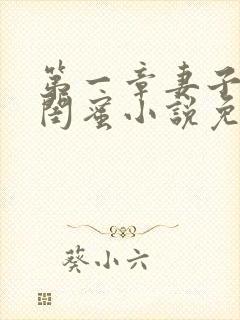 第一章妻子
闺蜜小说免
葵小六